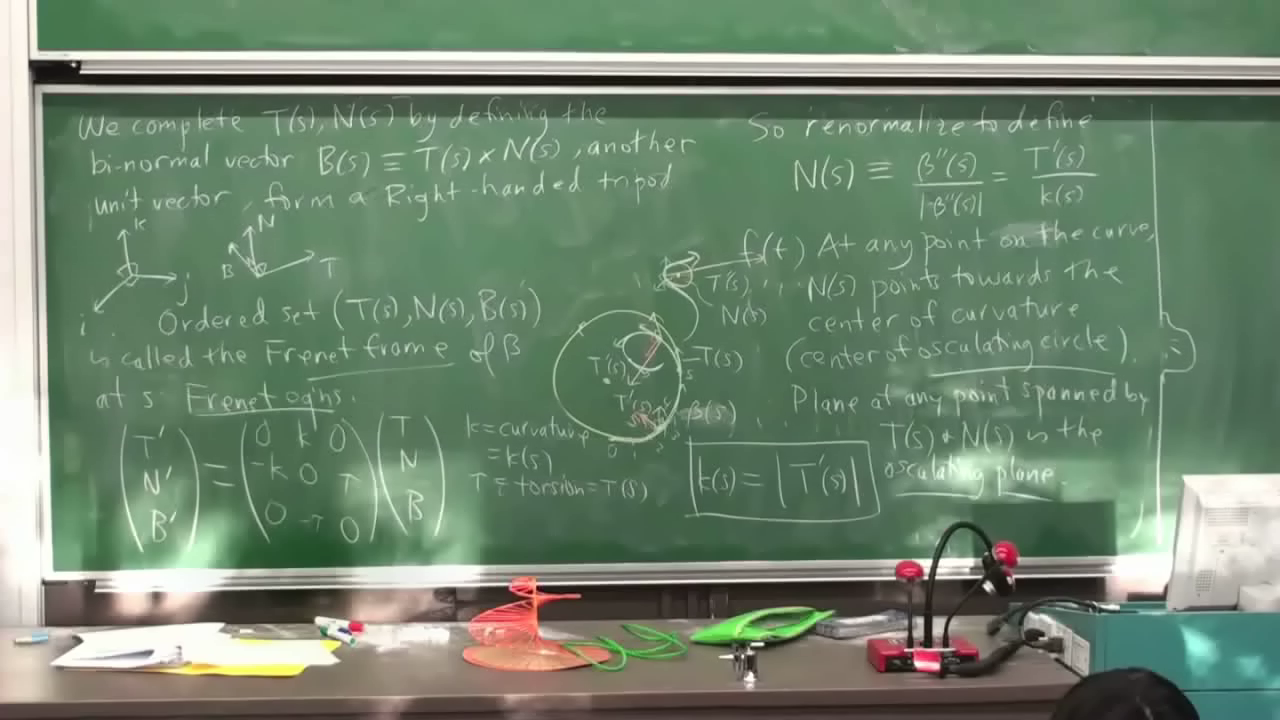 We complete T(s), N(s) by defining the
bi-normal vector B(s) ≡ T(s) × N(s), another
unit vector, form a Right-handed tripod
k
j
i
N
B
T
Ordered set (T(s), N(s), B(s))
is called the Frenet frame of β
at s Frenet eqns.
(T' N' B') = (0 k 0 -k 0 τ 0 -τ 0) (T N B)
k = curvature
= k(s)
τ = torsion = τ(s)
T'(s)
T(s)
T'(s)
β(s)
0 1 2
So renormalize to define
N(s) ≡ β''(s) / |β''(s)| = T'(s) / k(s)
f(t)
T'(s)
N(s)
At any point on the curve,
N(s) points towards the
center of curvature
(center of osculating circle).
Plane at any point spanned by
T(s) & N(s) is the
osculating plane.
k(s) = |T'(s)|